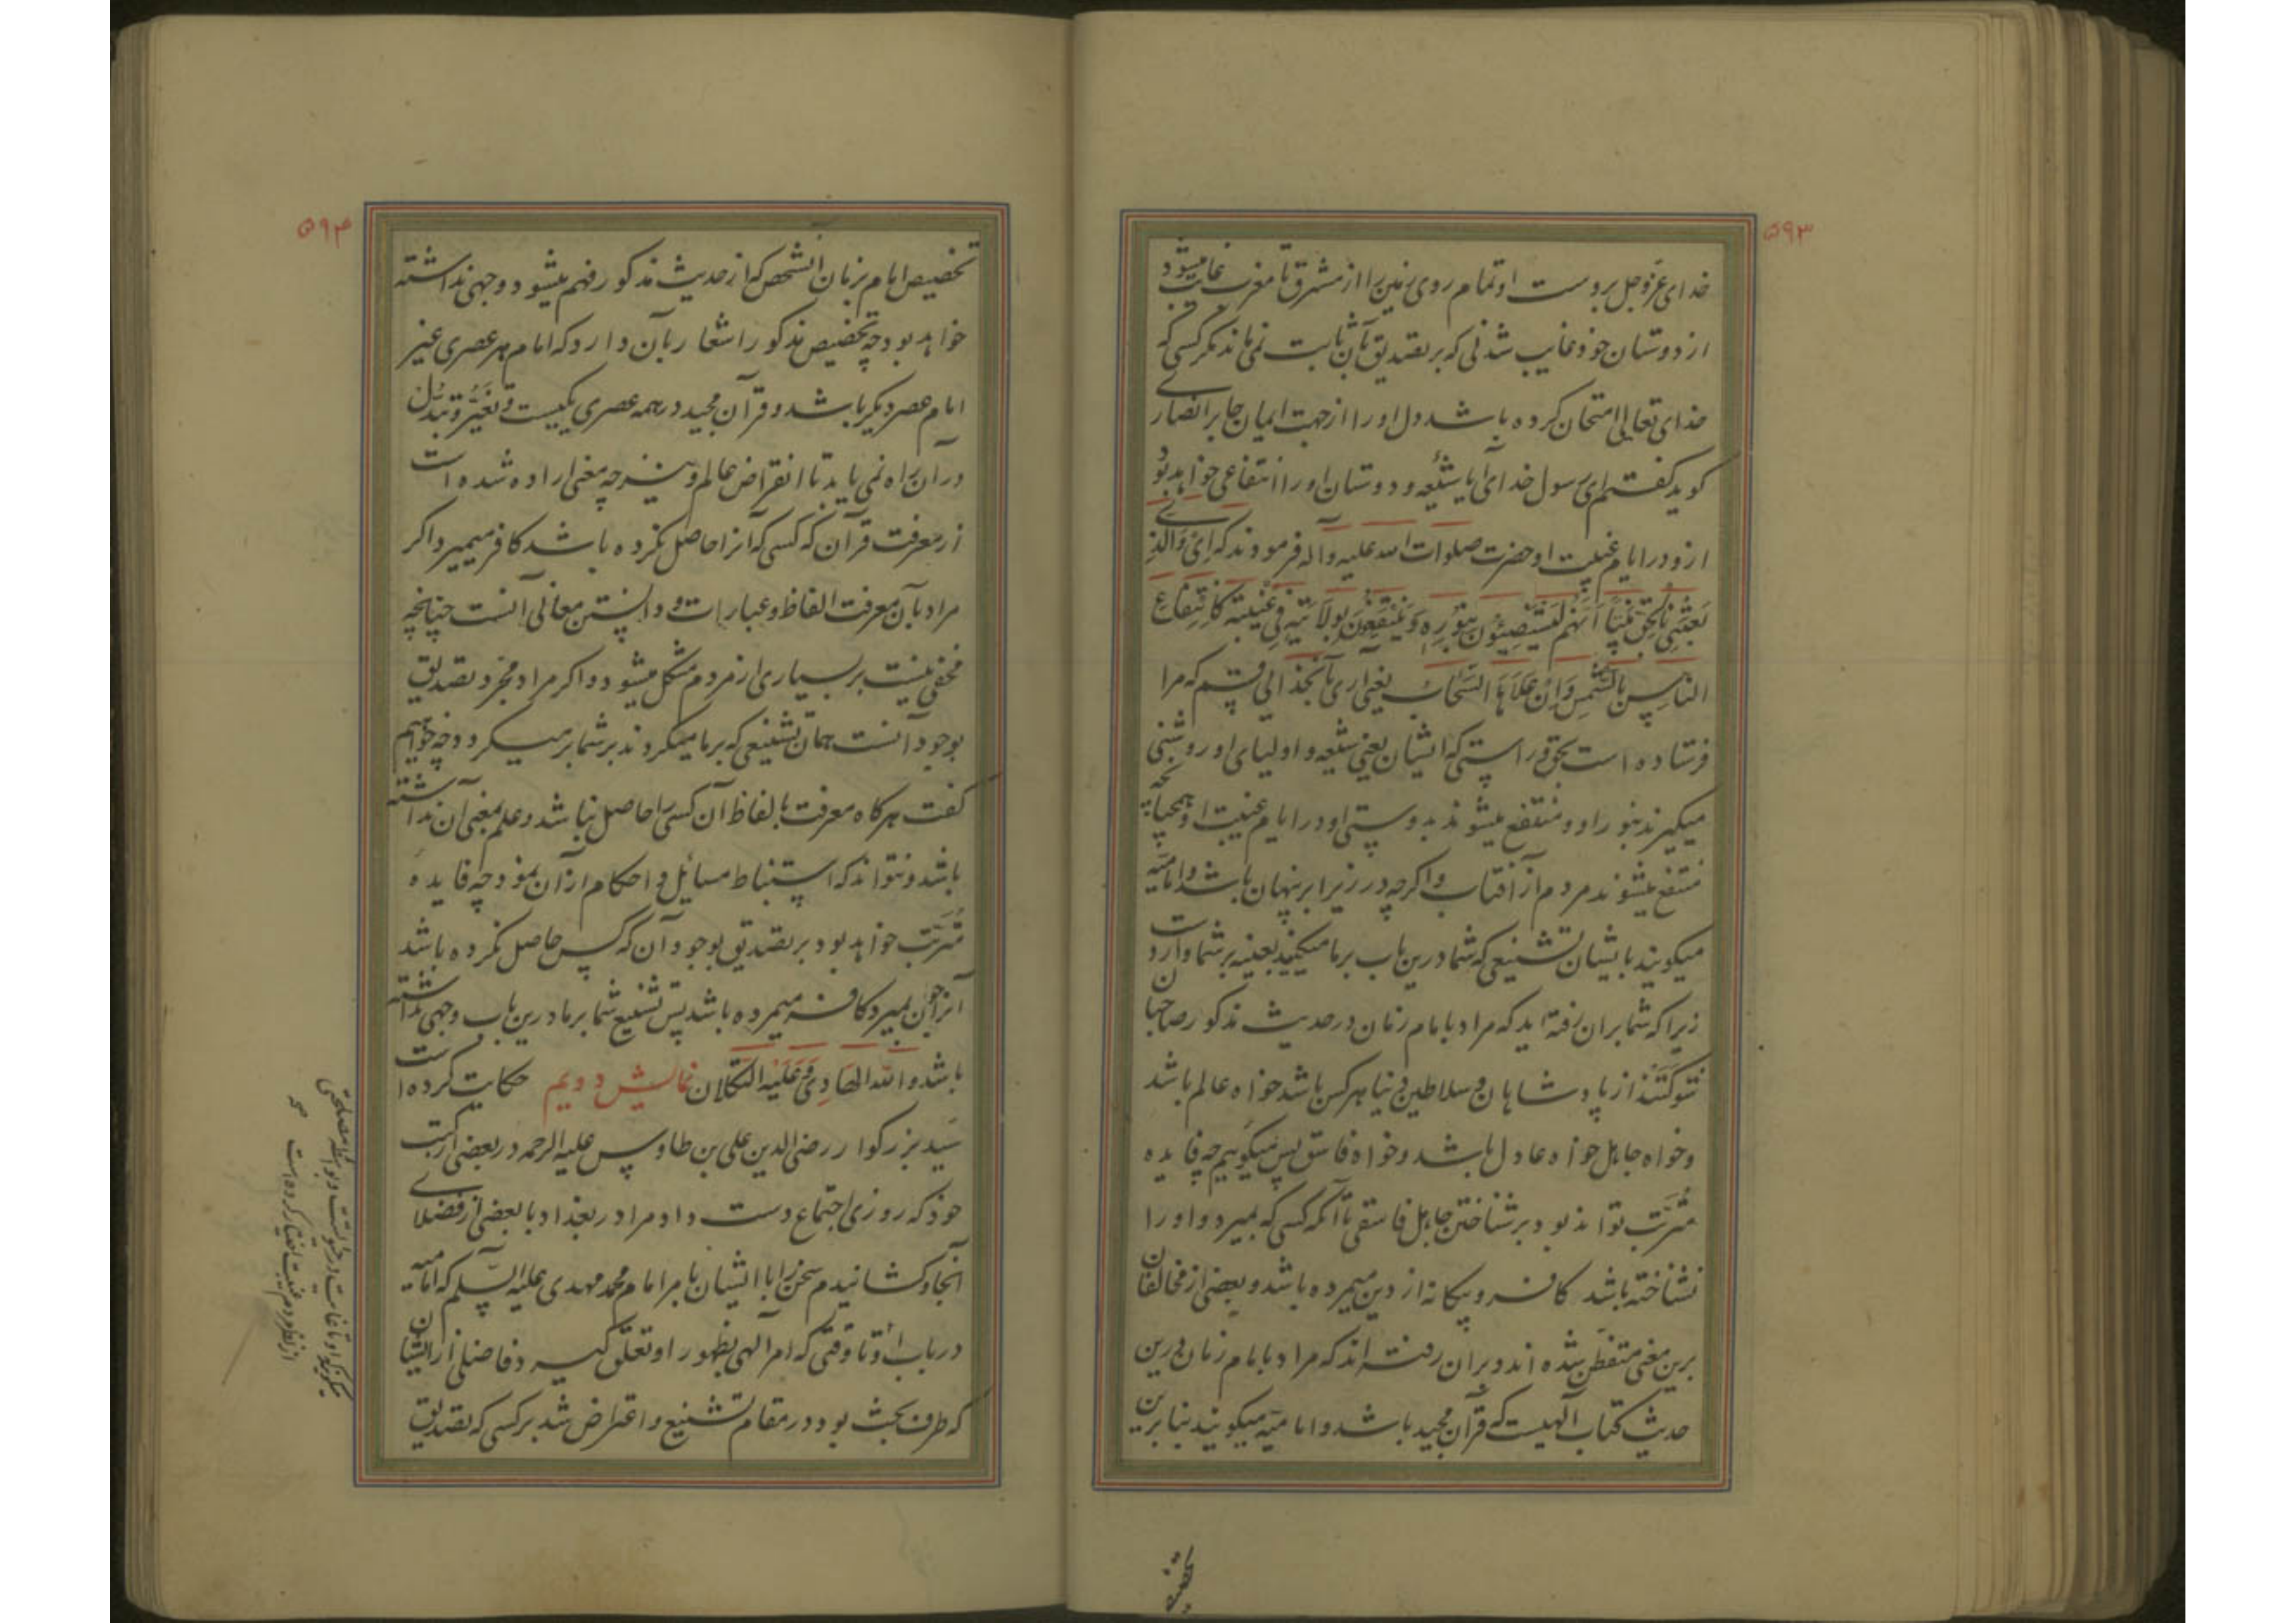 ۵۹۳
خدای عز و جل بر دست او تمام روی زمین را از مشرق تا مغرب غایب میشود
از دوستان خود غایب شدنی که بر تصدیق بآن ثابت نمی ماند مگر کسی که
خدای تعالی امتحان کرده باشد دل او را از جهت ایمان جابر انصاری
گوید گفتم ای رسول خدای آیا شیعه و دوستان او را انتفاعی خواهد بود
ازو در ایام غیبت او حضرت صلوات الله علیه و اله فرمودند که ای وَالَّذِی
بَعَثَنِی بِالْحَقِّ نَبِیًّا اَنَّهُم لَیَسْتَضِیئُونَ بِنُورِهِ وَ یَنْتَفِعُونَ بِوِلَایَتِهِ فِی غَیْبَتِهِ کَانْتِفَاعِ
النَّاسِ بِالشَّمْسِ وَاِنْ عَلَاهَا السَّحَابُ یعنی آری بآنخدائی قسم که مرا
فرستاده است بحق و راستی که ایشان یعنی شیعه و اولیای او روشنی
میگیرند بنور او و منتفع میشوند بدوستی او در ایام غیبت او همچنانچه
منتفع میشوند مردم از آفتاب و اگرچه در زیر ابر پنهان باشد و امامیه
میگویند بایشان تشنیعی که شما درین باب بر ما میکنید بعینه بر شما واردست
زیرا که شما بر آن رفته اید که مراد بامام زمان در حدیث مذکور صاحبان
شوکتند از پادشاهان و سلاطین دنیا هر کس باشد خواه عالم باشد
و خواه جاهل خواه عادل باشد و خواه فاسق پس میگوییم چه فایده
مُتَرَتِّب تواند بود بر شناختن جاهل فاسقی تا آنکه کسی که بمیرد و او را
نشناخته باشد کافر و بیگانه از دین میمرده باشد و بعضی از مخالفان
برین معنی متفطّن شده اند و بر آن رفته اند که مراد بامام زمان درین
حدیث کتاب آلهیست که قرآن مجید باشد و امامیّه میگویند بنا برین
تخصیص
۵۹۴
تخصیص امام بزمان آنشخص که از حدیث مذکور فهم میشود وجهی نداشته
خواهد بود چه تخصیص مذکور اشعار بآن دارد که امام هر عصری غیر
امام عصر دیگر باشد و قرآن مجید در همه عصری یکیست و تغیّر و تبدّل
در آن راه نمی یابد تا انقراض عالم و نیز چه معنی اراده شده است
از معرفت قرآن که کسی که آنرا حاصل نکرده باشد کافر میمیرد اگر
مراد بآن معرفت الفاظ و عبارات و دانستن معانی آنست چنانچه
مخفی نیست بر بسیاری از مردم مشکل میشود و اگر مراد مجرد تصدیق
بوجود آنست همان تشنیعی که بر ما میکردند بر شما بر میگردد چه خواهیم
گفت هرگاه معرفت بالفاظ آن کسی را حاصل نباشد و علم بمعنی آن نداشته
باشد و نتواند که استنباط مسایل و احکام از آن نمود چه فایده
مُتَرَتِّب خواهد بود بر تصدیق بوجود آن که کس حاصل نکرده باشد
آنرا چون بمیرد کافر میمرده باشد پس تشنیع شما بر ما درین باب وجهی نداشته
باشد و اللّه الهَادِی وَ عَلَیْهِ التُّکْلَان نمایش دویم حکایت کرده است
سَیّد بزرگوار رضی الدین علی بن طاوس علیه الرحمه در بعضی از کتب
خود که روزی اجتماع دست داد مرا در بغداد با بعضی از فضلای
آنجا و کشانیدم سخن را با ایشان بامر امام محمد مهدی علیه السّلم که امامیه
در باب او تا وقتی که امر آلهی بظهور او تعلّق گیرد و فاضلی از ایشان
که طرف بحث بود در مقام تشنیع و اعتراض شد بر کسی که تصدیق
میگویند که او تا غایت در حیاتست و بواسطه مصلحتی
از نظر مردم غیبت اختیار کرده است